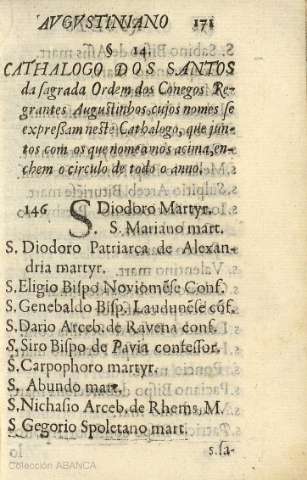 AVGVSTINIANO 171
§ 14.
CATHALOGO DOS SANTOS
da sagrada Ordem dos Conegos Re-
grantes Augustinhos, cujos nomes se
expressam neste Cathalogo, que jun-
tos com os que nomeamos acima, en-
chem o circulo de todo o anno.
146 S Diodoro Martyr.
S. Mariano mart.
S. Diodoro Patriarca de Alexan-
dria martyr.
S. Eligio Bispo Noviomẽse Conf.
S. Genebaldo Bisp. Laudunẽse cõf.
S. Dario Arceb. de Ravena conf.
S, Siro Bispo de Pavia confessor.
S. Carpophoro martyr.
S. Abundo mart.
S, Nichasio Arceb. de Rhems, M.
S Gegorio Spoletano mart.
s. sa-
Colección ABANCA